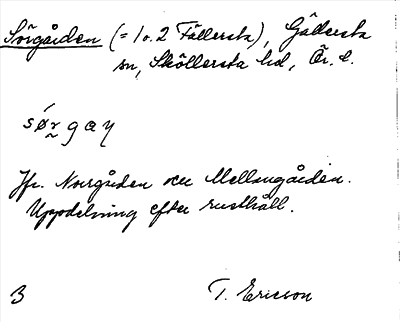 Sörgården (= 1 o. 2 Fällersta), Gällersta
sn, Sköllersta hd, Ör. l.
sørgaɳ
Jfr. Norrgården och Mellangården.
Uppdelning efter rusthåll.
B T. Ericson